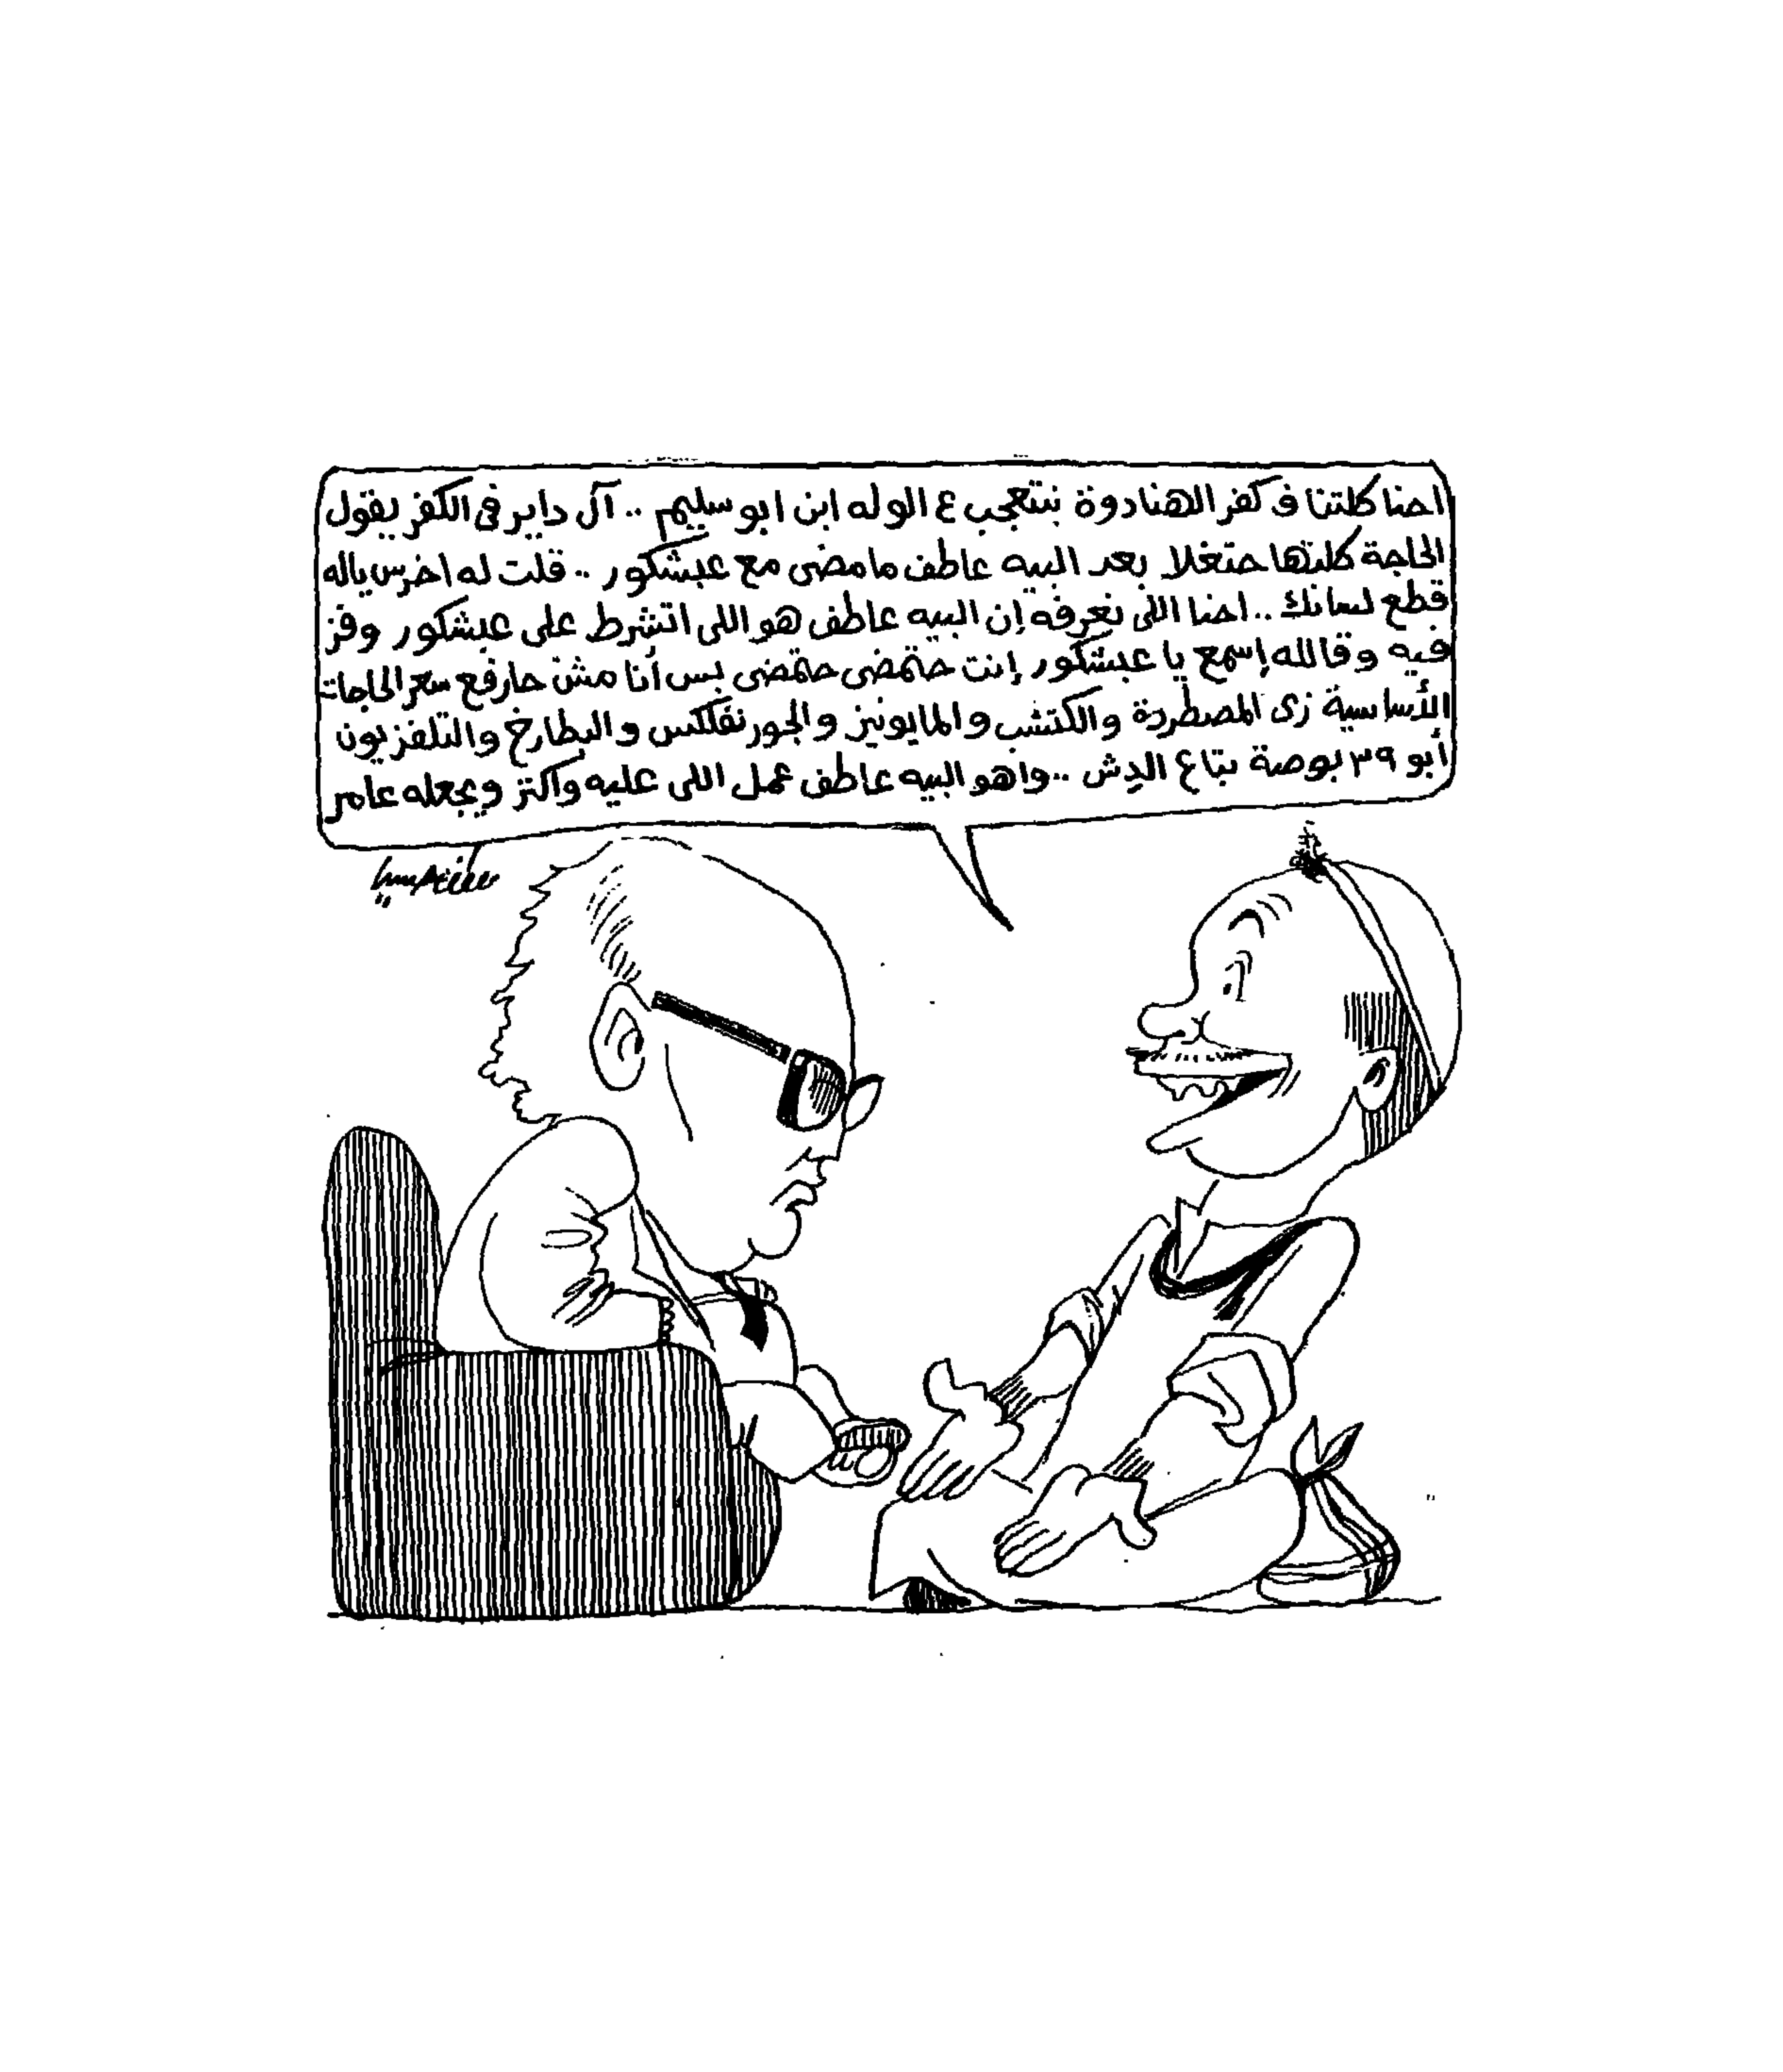 احنا كلتنا ف كفر الهنادوة بنتعجب ع الوله ابن ابو سليم .. آل داير فى الكفر يقول
الحاجة كلتها حتغلا بعد البيه عاطف ما مضى مع عبشكور .. قلت له اخرس ياله
قطع لسانك .. احنا اللى نعرفه إن البيه عاطف هو اللى اتشرط على عبشكور وفز
فيه وقالله إسمع يا عبشكور إنت حتمضى حتمضى بس أنا مش حارفع سعر الحاجات
الأساسية زى المصطردة والكتشب والمايونيز والجور نفلكس والبطارخ والتلفزيون
أبو ٣٩ بوصة بتاع الدش .. واهو البيه عاطف عمل اللى عليه وأكتر ويجعله عامر